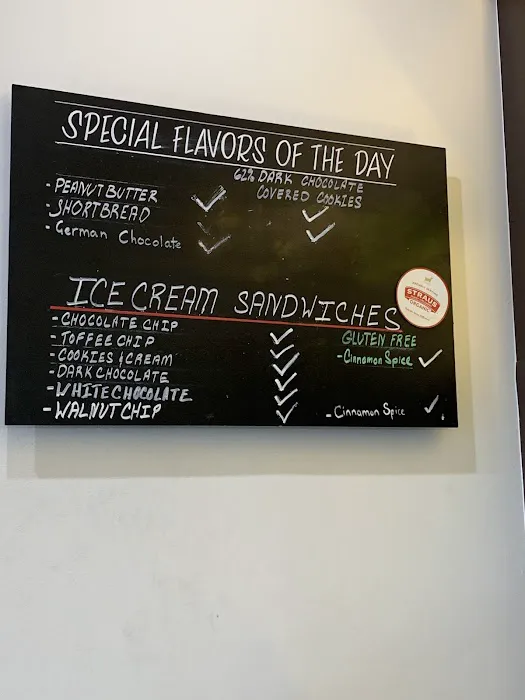 SPECIAL FLAVORS OF THE DAY
62% DARK CHOCOLATE
COVERED COOKIES
- PEANUT BUTTER
- SHORTBREAD
- German Chocolate
ICE CREAM SANDWICHES
- CHOCOLATE CHIP
- TOFFEE CHIP
- COOKIES & CREAM
- DARK CHOCOLATE
- WHITE CHOCOLATE
- WALNUT CHIP
GLUTEN FREE
- Cinnamon Spice
- Cinnamon Spice
STRAUS
ORGANIC